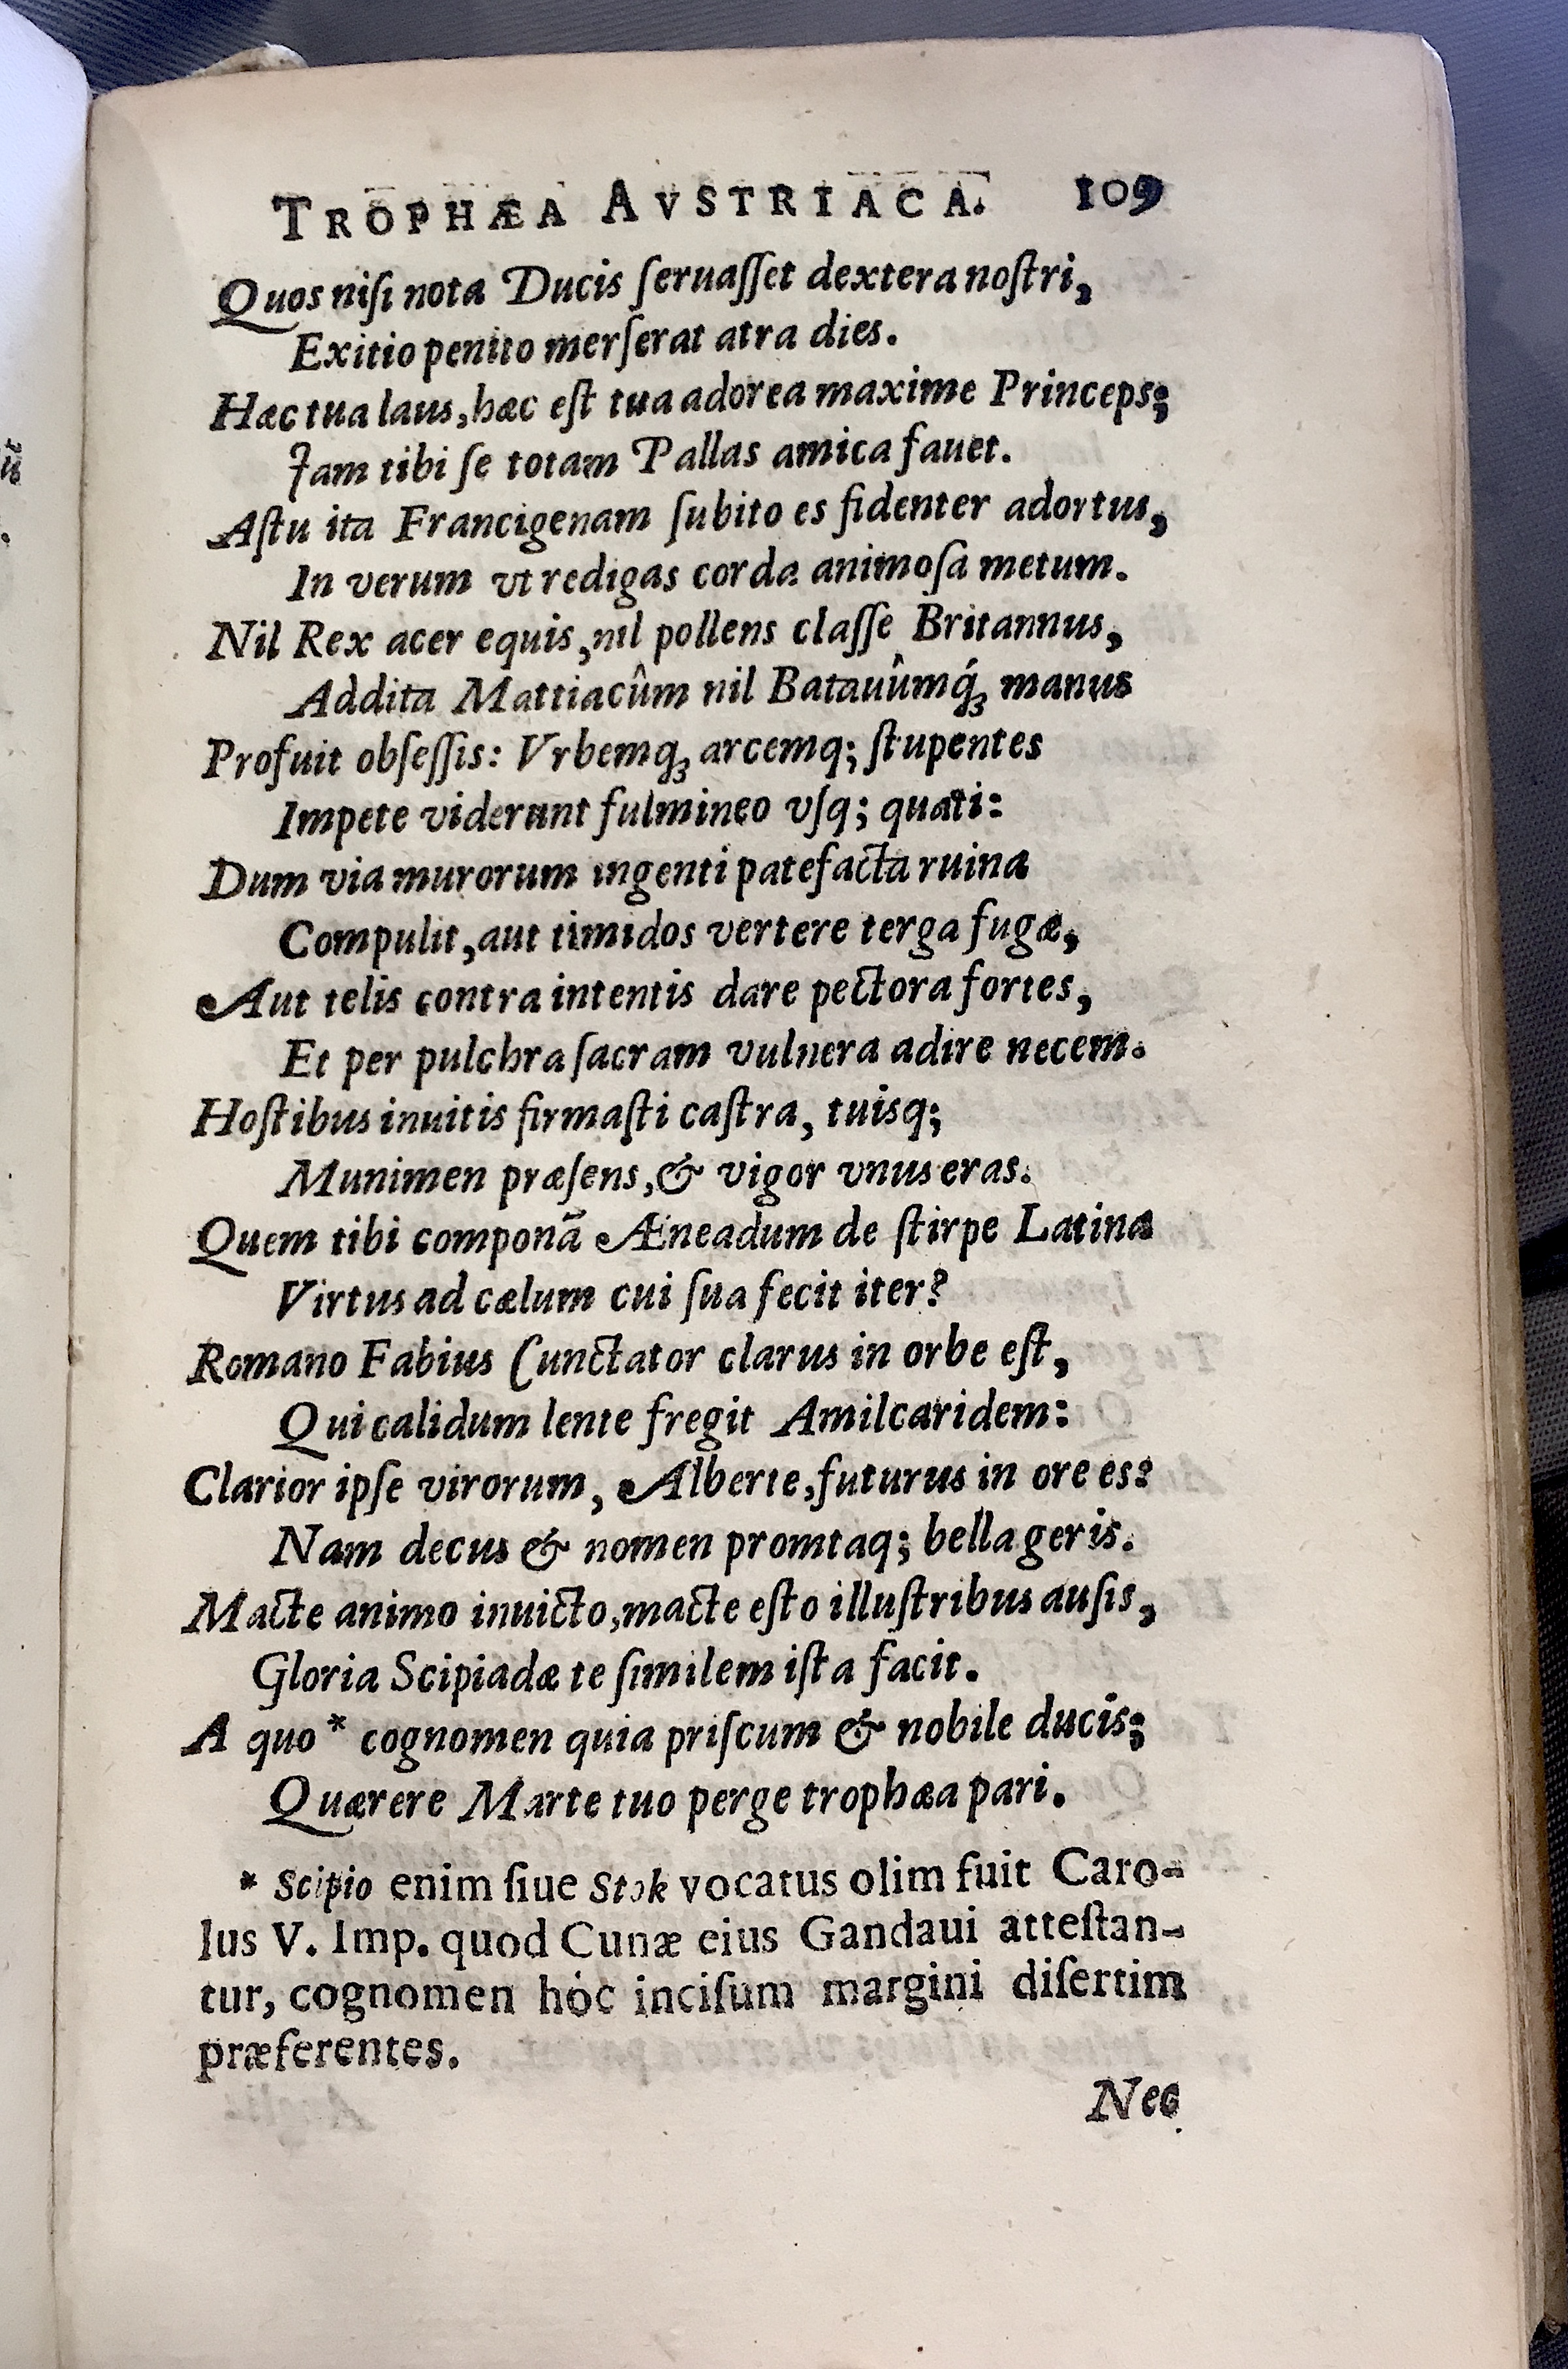 TROPHÆA AVSTRIACA. 109
Quos niſi nota Ducis ſeruaſſet dextera noſtri,
Exitio penito merſerat atra dies.
Hæc tua laus, hæc eſt tua adorea maxime Princeps;
Jam tibi ſe totam Pallas amica fauet.
Aſtu ita Francigenam ſubito es fidenter adortus,
In verum vt redigas corda animoſa metum.
Nil Rex acer equis, nil pollens claſſe Britannus,
Addita Mattiacûm nil Batauûmq́ꝫ manus
Profuit obſeſſis: Vrbemqꝫ arcemq; ſtupentes
Impete viderunt fulmineo vſq; quati:
Dum via murorum ingenti patefacta ruina
Compulit, aut timidos vertere terga fugæ,
Aut telis contra intentis dare pectora fortes,
Et per pulchra ſacram vulnera adire necem.
Hoſtibus inuitis firmaſti caſtra, tuisq;
Munimen præſens, & vigor vnus eras.
Quem tibi componã Æneadum de ſtirpe Latina
Virtus ad cælum cui ſua fecit iter?
Romano Fabius Cunctator clarus in orbe eſt,
Qui calidum lente fregit Amilcaridem:
Clarior ipſe virorum, Alberte, futurus in ore es?
Nam decus & nomen promtaq; bella geris.
Macte animo inuicto, macte eſto illuſtribus auſis,
Gloria Scipiadæ te ſimilem iſta facit.
A quo * cognomen quia priſcum & nobile ducis;
Quærere Marte tuo perge trophæa pari.
* Scipio enim ſiue Stok vocatus olim fuit Caro-
lus V. Imp. quod Cunæ eius Gandaui atteſtan-
tur, cognomen hoc inciſum margini diſertim
præferentes.
Nec